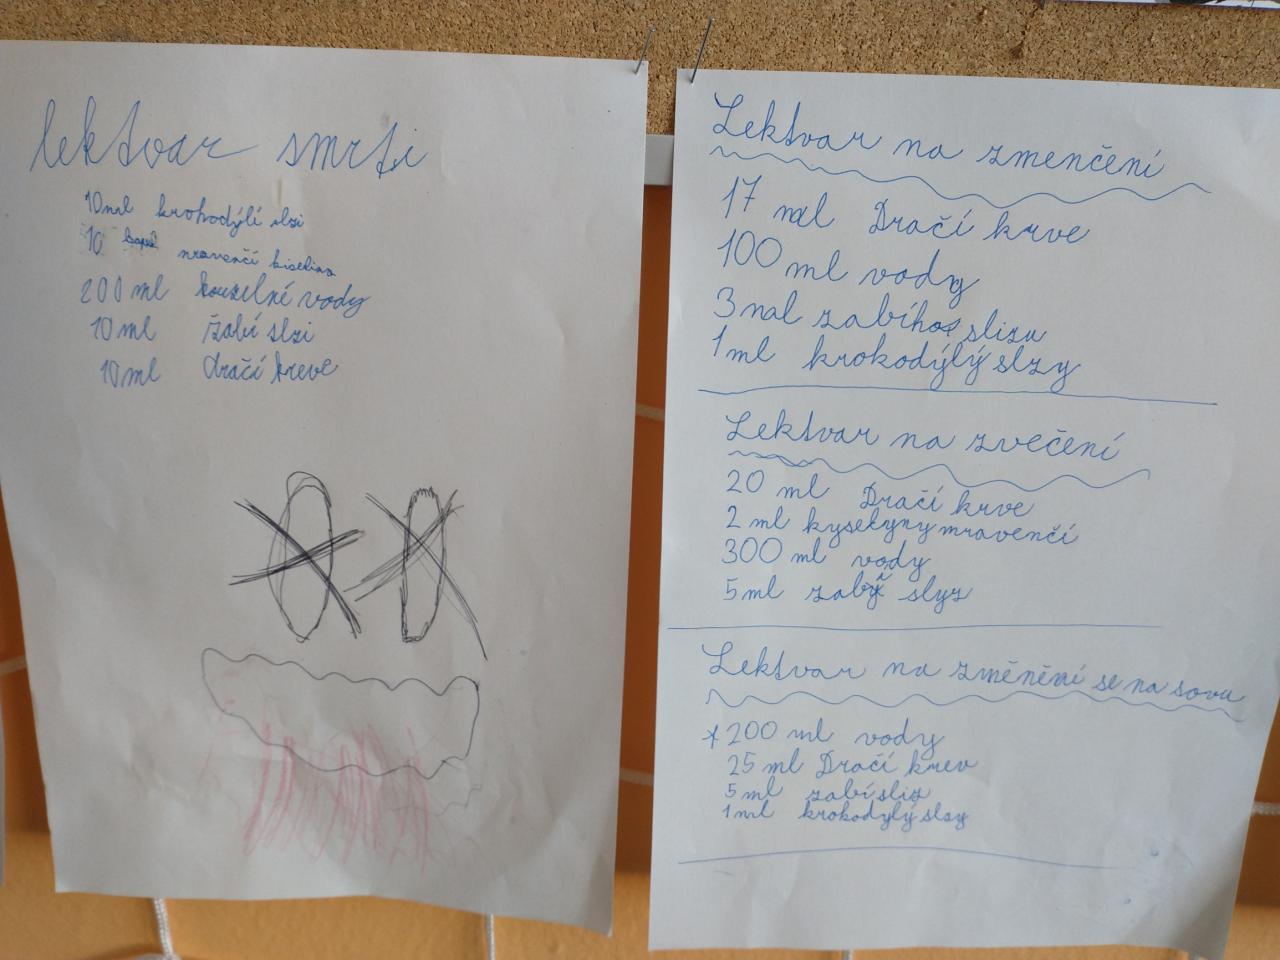 lektvar smrti
10ml krokodýlí slzi
10 kapek mravenčí kiselina
200 ml kouzelné vody
10 ml žabí slzi
10 ml dračí kreve
Lektvar na zmenčení
17 ml Dračí krve
100 ml vody
3 ml zabího slizu
1 ml krokodýlý slzy
Lektvar na zvečení
20 ml Dračí krve
2 ml kyselyny mravenčí
300 ml vody
5 ml zabí slyz
Lektvar na změnění se na sovu
200 ml vody
25 ml Dračí krev
5 ml zabí sliz
1 ml krokodylý slzy